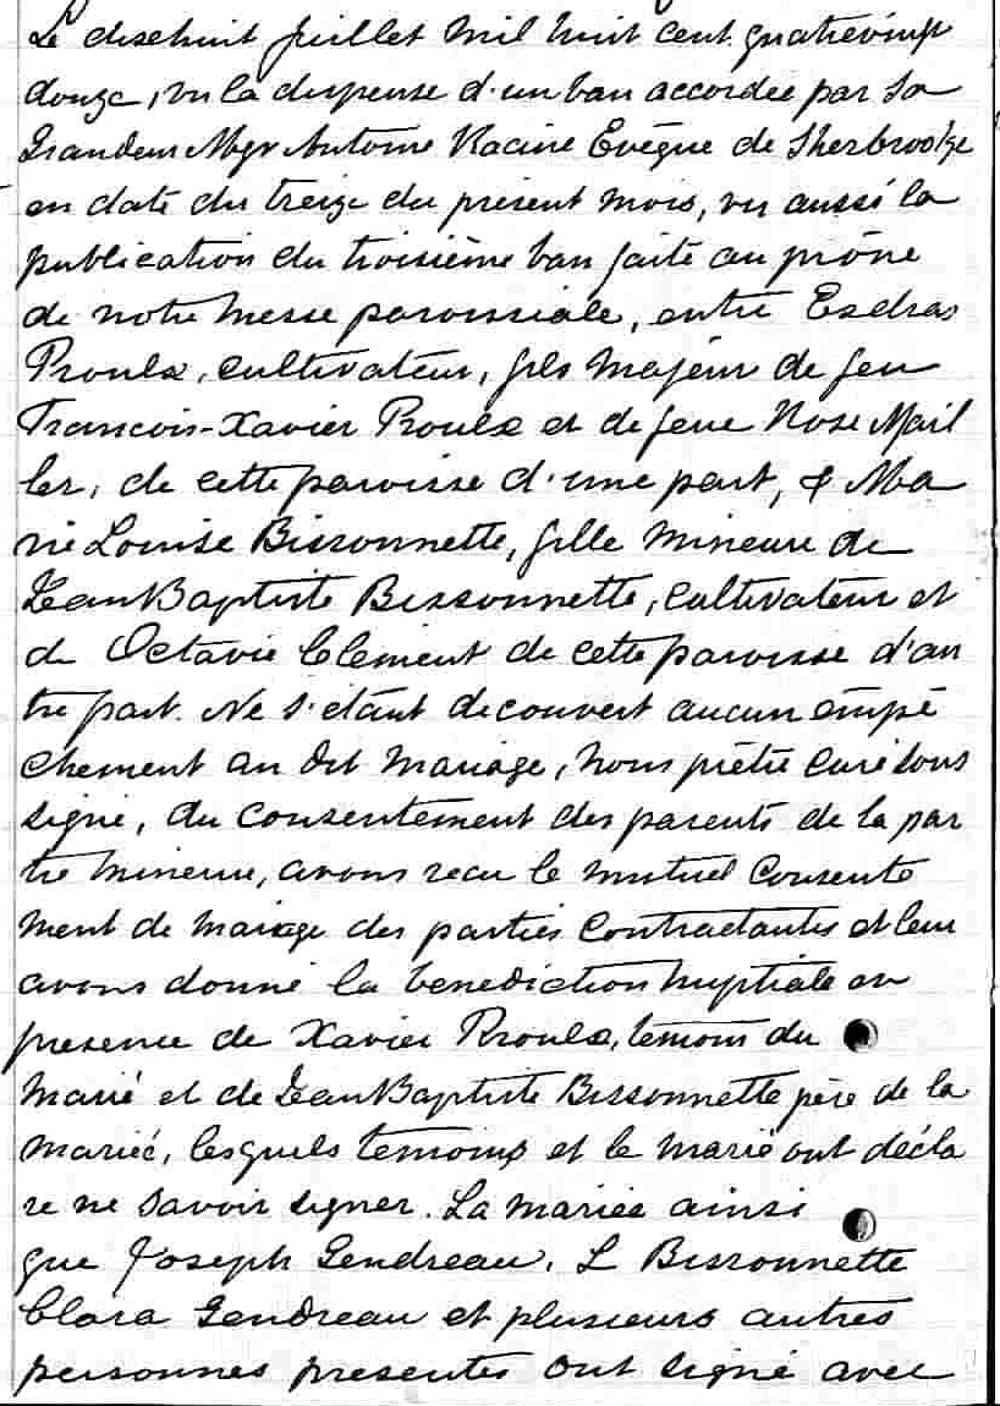 Le dixehuit juillet mil huit cent quatrevingt
douze, vu la dispense d'un ban accordée par Sa
Grandeur Mgr Antoine Racine Evêque de Sherbrooke
en date du treize du présent mois, vu aussi la
publication du troisième ban faite au prône
de notre messe paroissiale, entre Esdras
Proulx, cultivateur, fils majeur de feu
Francois-Xavier Proulx et de feue Rose Mail
ler, de cette paroisse d'une part, & Ma
rie Louise Bissonnette, fille mineure de
Jean Baptiste Bissonnette, cultivateur et
de Octavie Clement de cette paroisse d'au
tre part. Ne s'etant decouvert aucun empê
chement au dit mariage, nous prêtre curé sous
signé, du consentement des parents de la par
tie mineure, avons recu le mutuel consente
ment de mariage des parties contractantes et leur
avons donné la benediction nuptiale en
presence de Xavier Proulx, temoin du
marié et de Jean Baptiste Bissonnette père de la
mariée, lesquels temoins et le marié ont décla
re ne savoir signer. La mariée ainsi
que Joseph Gendreau, L Bissonnette
Clara Gendreau et plusieurs autres
personnes presentes ont signé avec